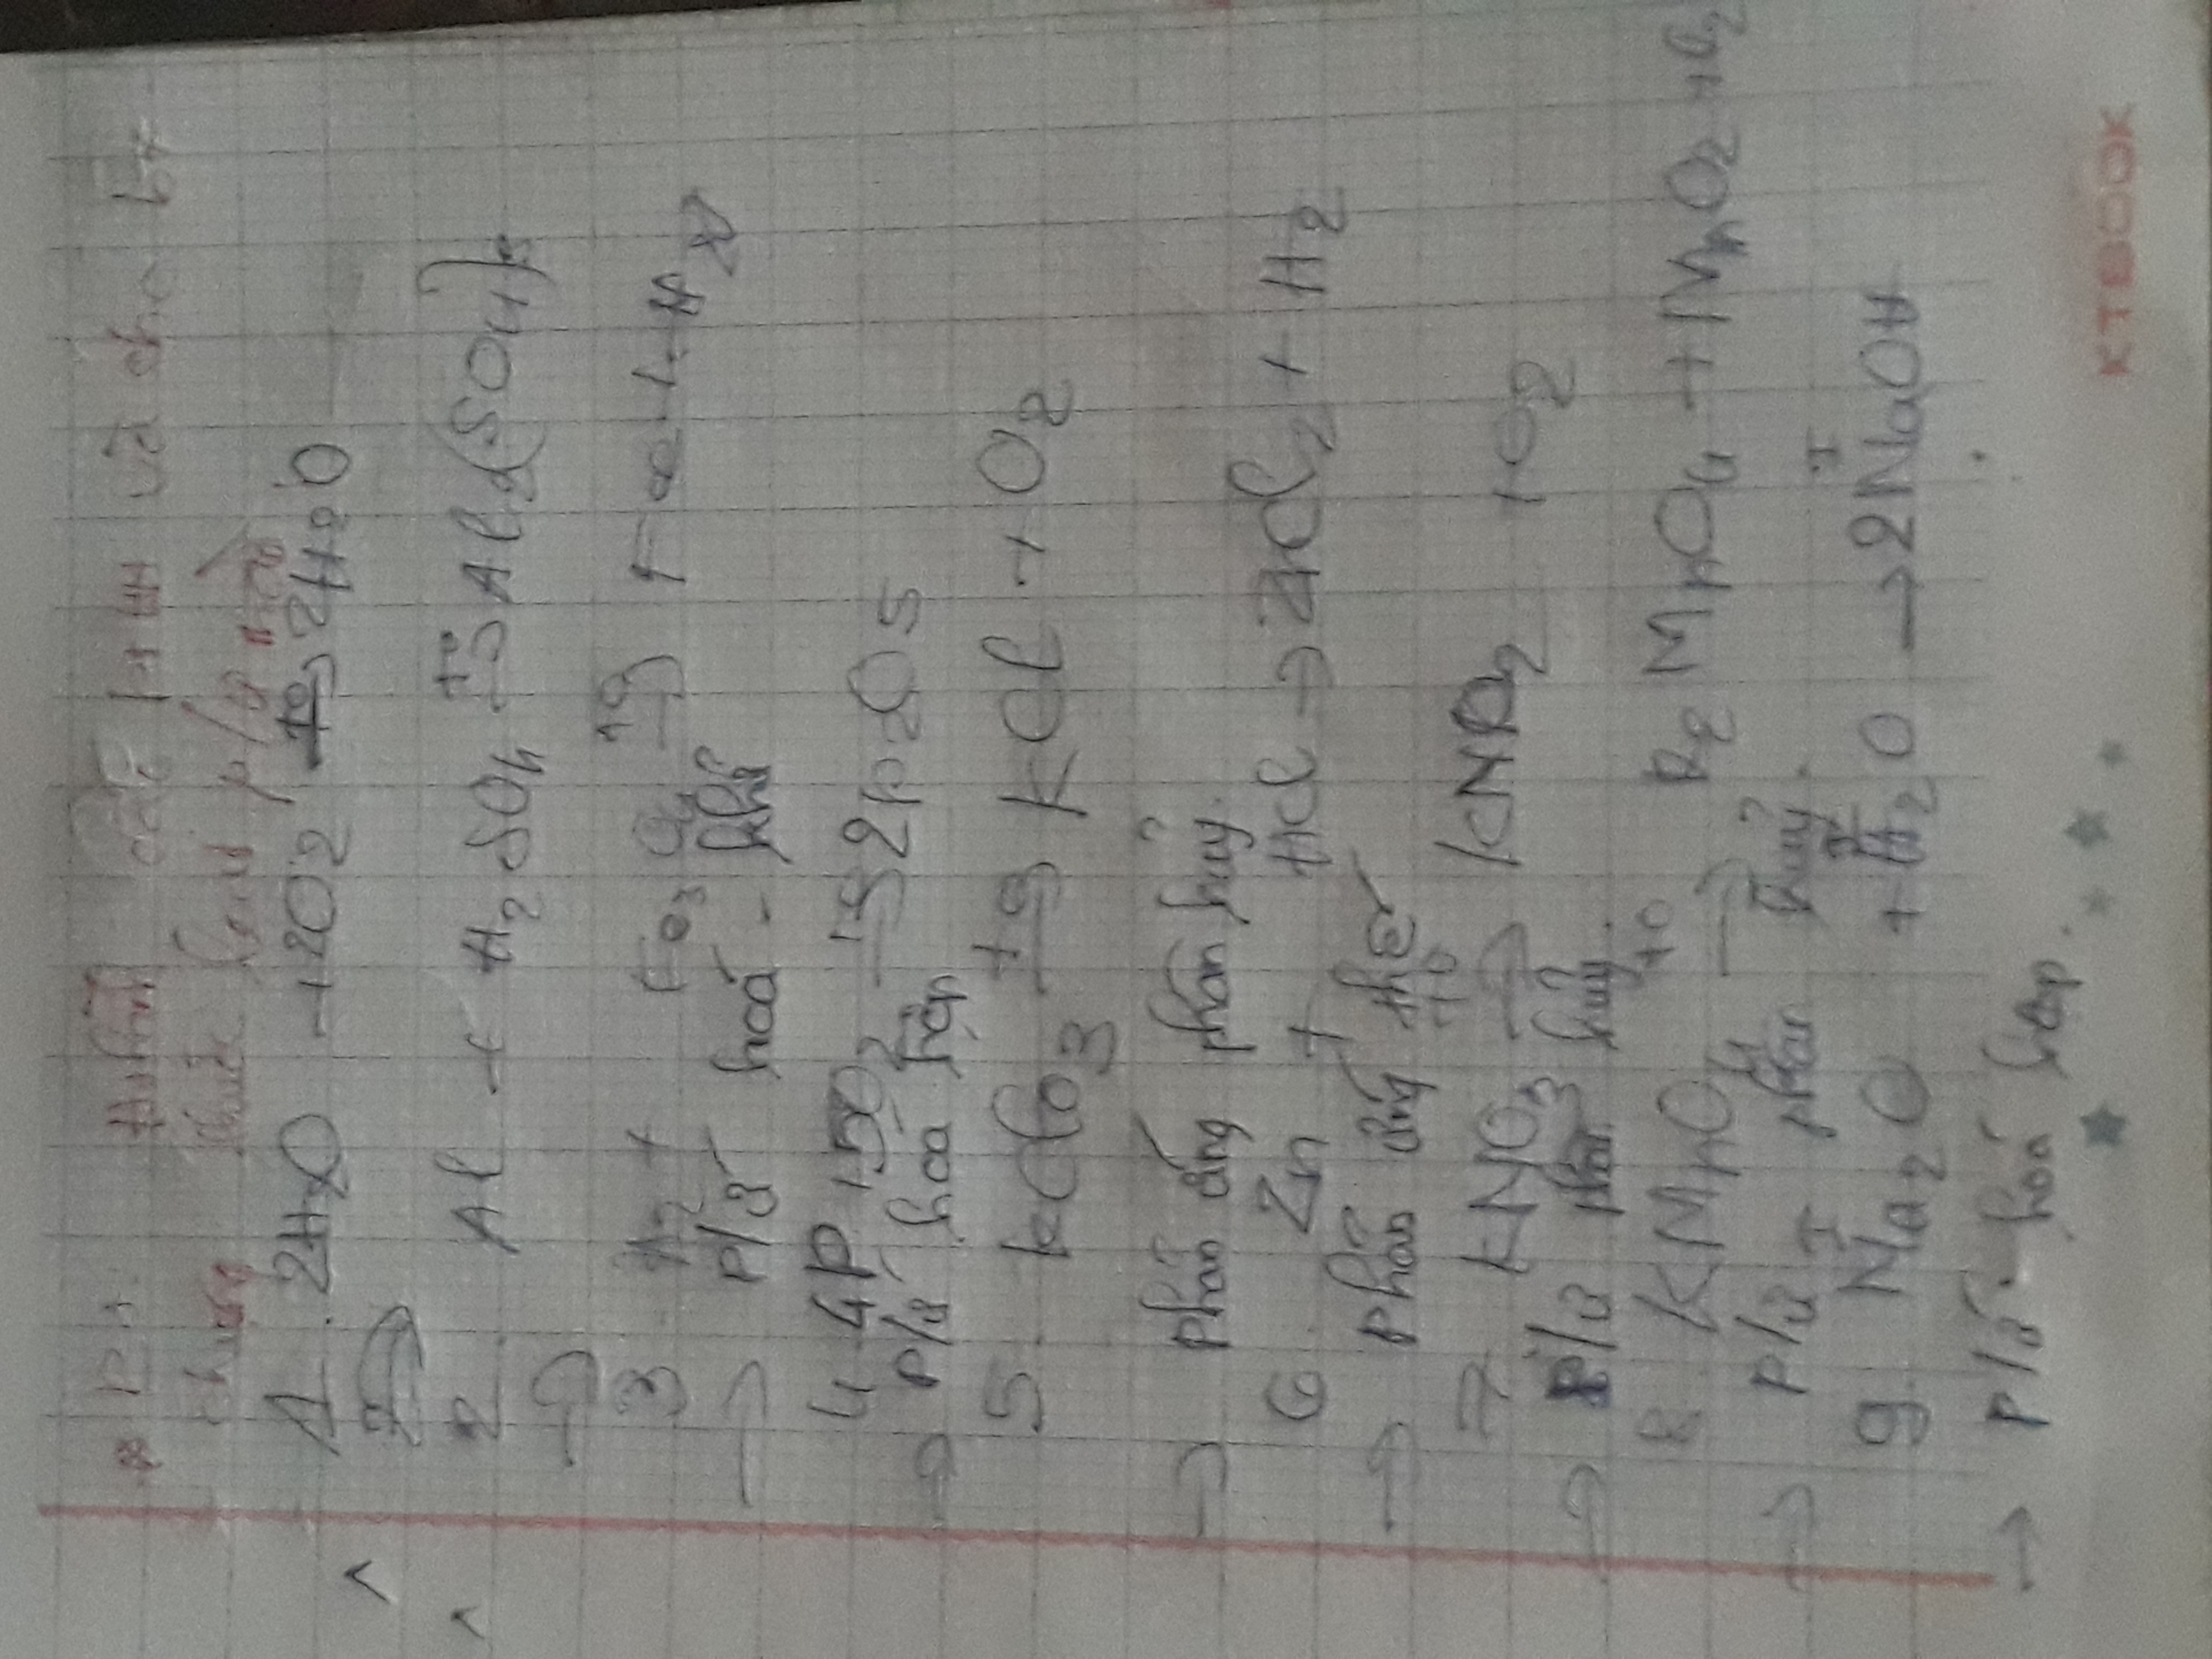 thành các PTHH và cho bt
thuộc loại p/ứ nào
1. 2H2O + 2O2 t° 2H2O
2 Al + H2SO4 t° Al2(SO4)3
3 H2 + Fe3O4 t° Fe + H2O
→ p/ứ hoá - khử
4 4P + 5O2 → 2P2O5
→ p/ứ hoá hợp
5 KClO3 t° KCl + O2
→ phản ứng phân huỷ.
6 Zn + HCl → ZnCl2 + H2
→ phản ứng thế
7 KNO3 t° → KNO2 + O2
→ p/ứ phân huỷ.
8 KMnO4 t° → K2MnO4 + MnO2 + O2
→ p/ứ phân huỷ.
I II I
9 Na2O + H2O → 2NaOH
→ p/ứ hoá hợp.
KTEBOOK